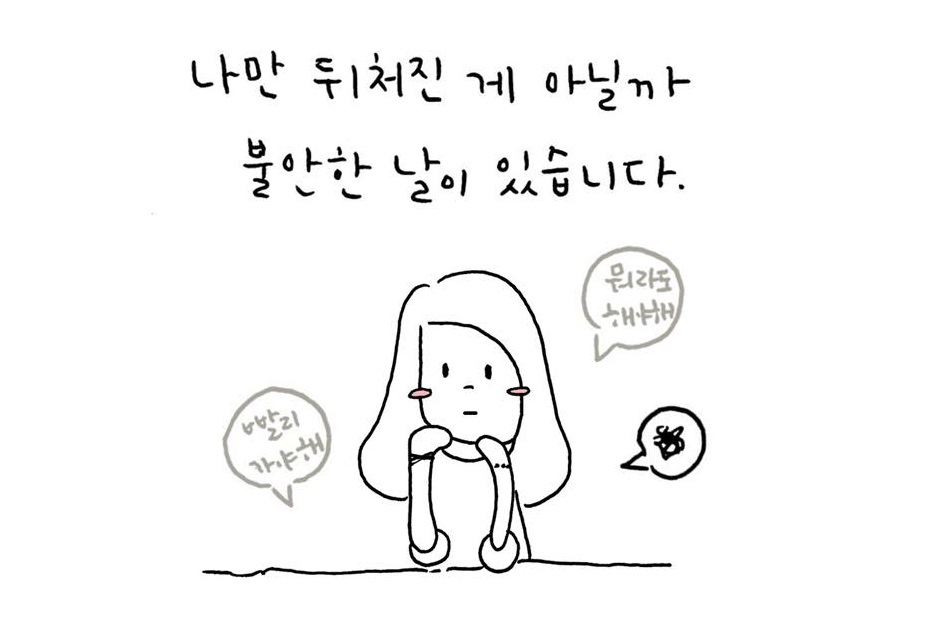 나만 뒤처진 게 아닐까
불안한 날이 있습니다.
뭐라도
해야해
빨리
가야해